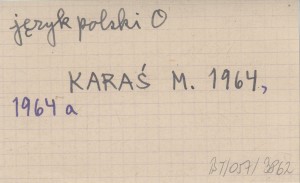 język polski O
KARAŚ M. 1964,
1964 a
BT/057/3862